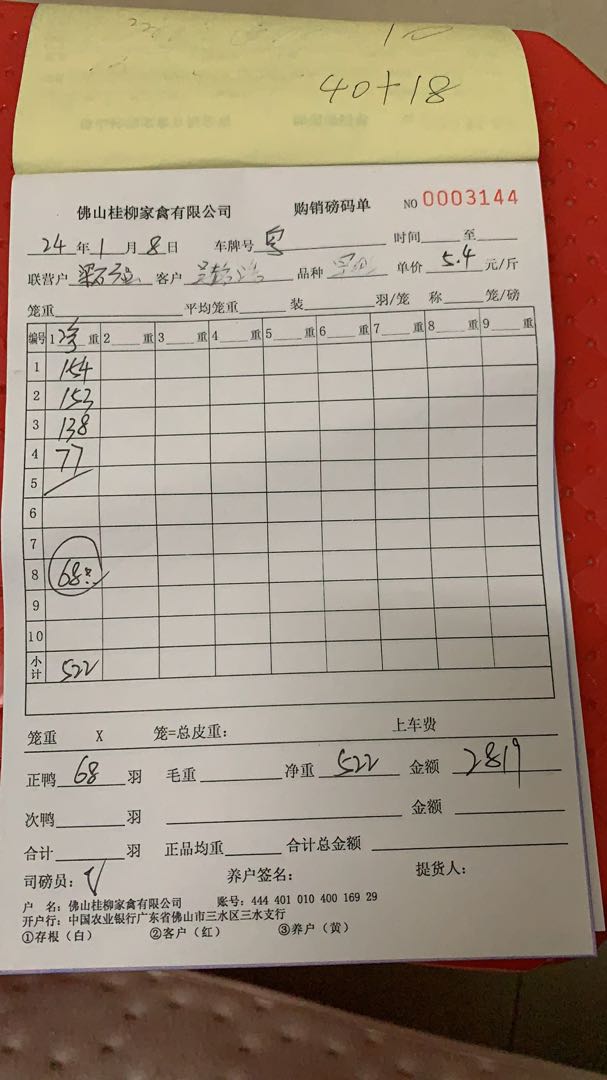 40+18
佛山桂柳家禽有限公司 购销磅码单 NO 0003144
24年1月8日 车牌号 时间 至
联营户 客户 品种 单价 5.4 元/斤
笼重 平均笼重 装 羽/笼 称 笼/磅
编号 1 净 重 2 重 3 重 4 重 5 重 6 重 7 重 8 重 9 重
1 154
2 153
3 138
4 77
5
6
7
8 68
9
10
小计 522
笼重 X 笼=总皮重: 上车费
正鸭 68 羽 毛重 净重 522 金额 2819
次鸭 羽 金额
合计 羽 正品均重 合计总金额
司磅员: 养户签名: 提货人:
户 名: 佛山桂柳家禽有限公司 账号: 444 401 010 400 169 29
开户行: 中国农业银行广东省佛山市三水区三水支行
①存根（白） ②客户（红） ③养户（黄）